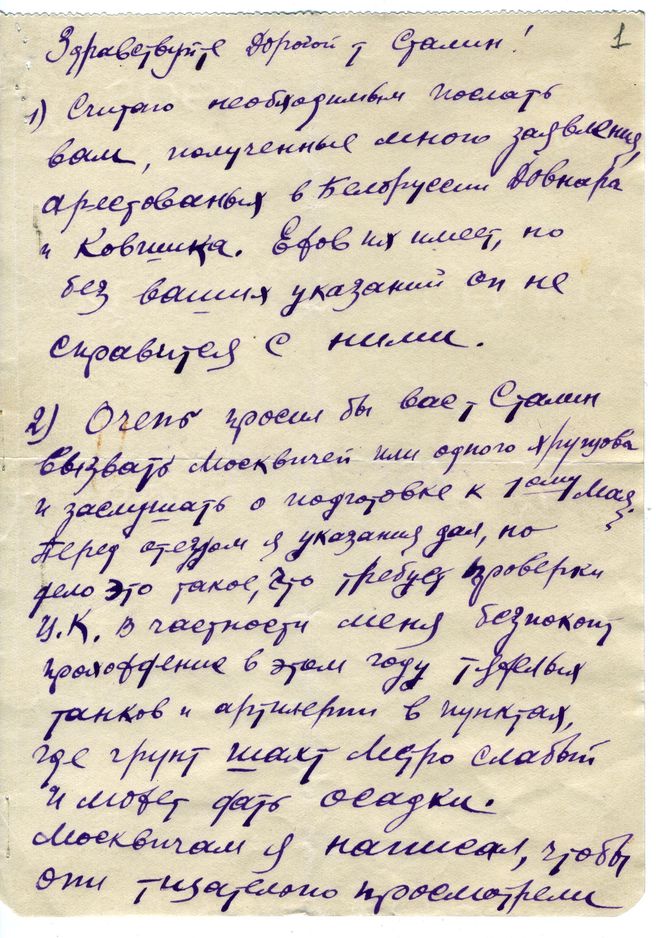 1
Здравствуйте Дорогой т Сталин!
1) Считаю необходимым послать
вам, полученные много заявления,
арестованых в Белоруссии Довнара
и Ковшика. Ефов их имеет, но
без ваших указаний он не
справится с ними.
2) Очень просил бы вас т Сталин
вызвать Москвичей или одного Хрущова
и заслушать о подготовке к 1ому Мая;
Перед отездом я указания дал, но
дело это такое, что требует проверки
Ц.К. В частности меня безпокоит
прохождение в этом году тяжелых
танков и артилерии в пунктах,
где грунт шахт Метро слабый
и может дать осадки.
Москвичам я написал, чтобы
они тщательно просмотрели